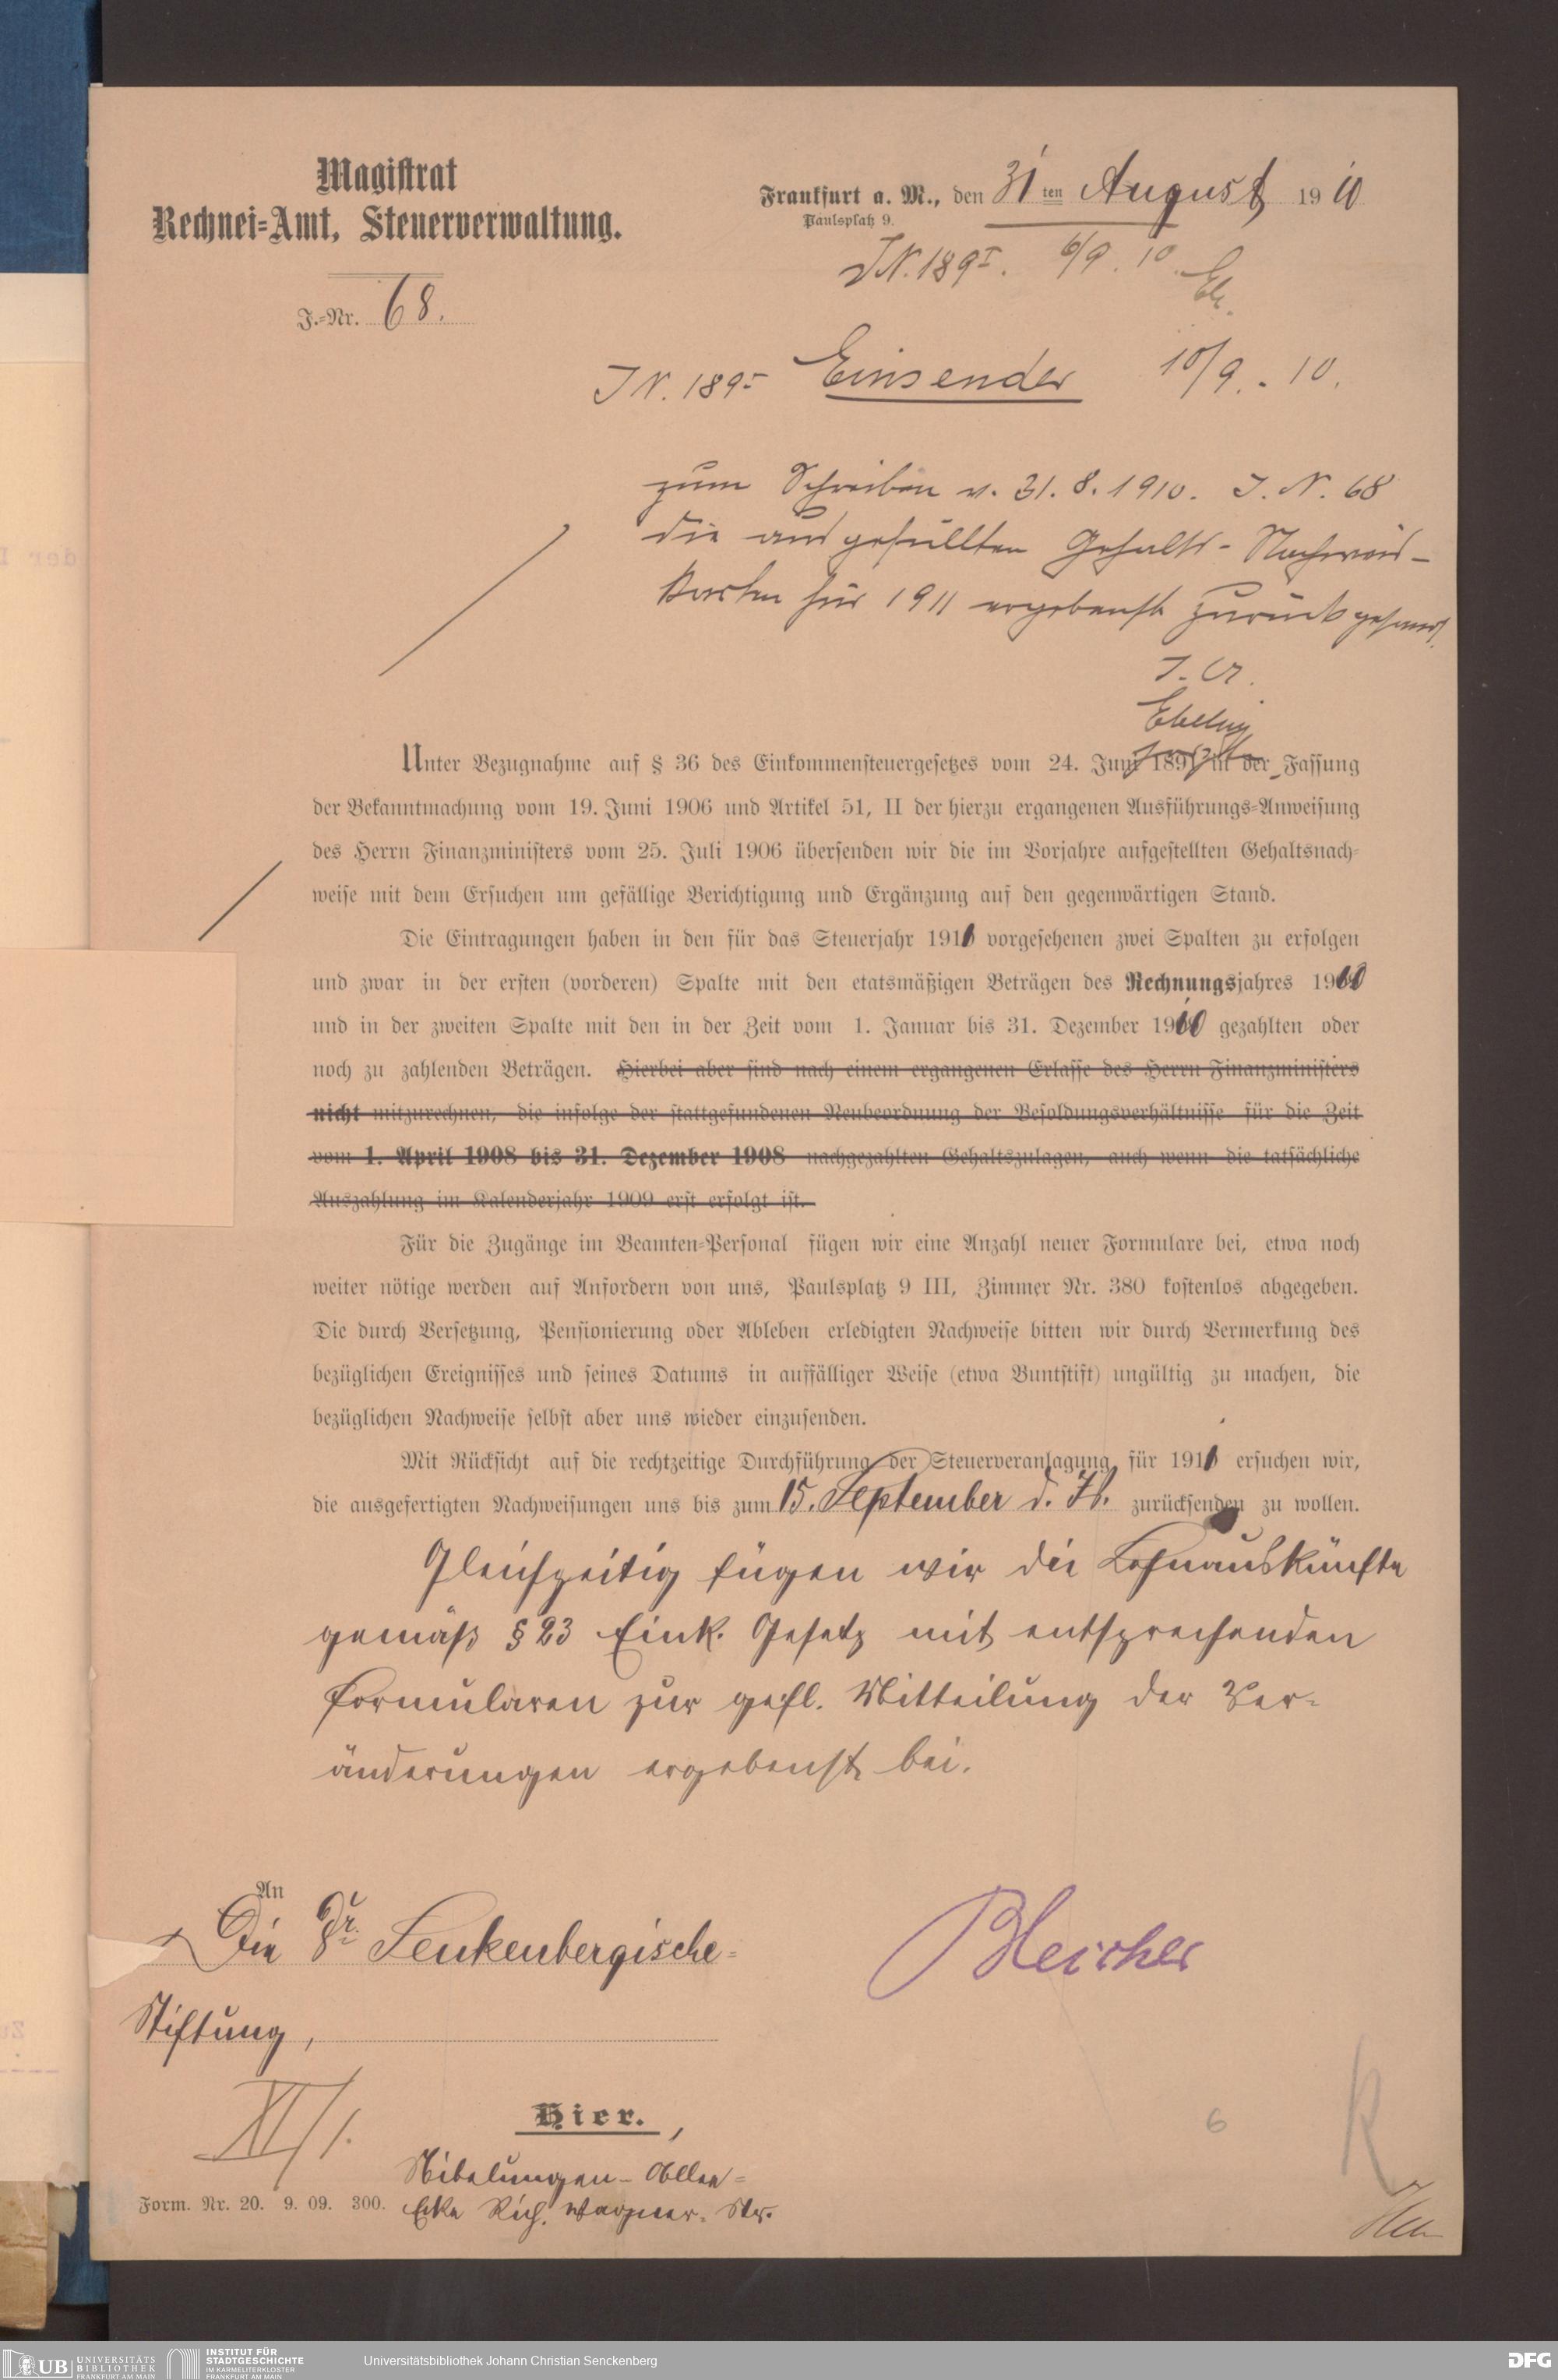 Magistrat
Rechnei-Amt, Steuerverwaltung.
J.-Nr. 68.
Frankfurt a. M., den 31ten August 1910
Paulsplatz 9.
JN. 189I. 6/9. 10
JN. 189I Einsender 10/9. 10.
zum Schreiben v. 31. 8. 1910. J. N. 68
die ausgefüllten Gehalts-Nachweis-
karten für 1911 ergebenst zurückgesandt.
J. A.
Ebeling
Unter Bezugnahme auf § 36 des Einkommensteuergesetzes vom 24. Juni 1891 in der Fassung
der Bekanntmachung vom 19. Juni 1906 und Artikel 51, II der hierzu ergangenen Ausführungs-Anweisung
des Herrn Finanzministers vom 25. Juli 1906 übersenden wir die im Vorjahre aufgestellten Gehaltsnach-
weise mit dem Ersuchen um gefällige Berichtigung und Ergänzung auf den gegenwärtigen Stand.
Die Eintragungen haben in den für das Steuerjahr 1911 vorgesehenen zwei Spalten zu erfolgen
und zwar in der ersten (vorderen) Spalte mit den etatsmäßigen Beträgen des Rechnungsjahres 1910
und in der zweiten Spalte mit den in der Zeit vom 1. Januar bis 31. Dezember 1910 gezahlten oder
noch zu zahlenden Beträgen. Hierbei aber sind nach einem ergangenen Erlasse des Herrn Finanzministers
nicht mitzurechnen, die infolge der stattgefundenen Neubeordnung der Besoldungsverhältnisse für die Zeit
vom 1. April 1908 bis 31. Dezember 1908 nachgezahlten Gehaltszulagen, auch wenn die tatsächliche
Auszahlung im Kalenderjahr 1909 erst erfolgt ist.
Für die Zugänge im Beamten-Personal fügen wir eine Anzahl neuer Formulare bei, etwa noch
weiter nötige werden auf Anfordern von uns, Paulsplatz 9 III, Zimmer Nr. 380 kostenlos abgegeben.
Die durch Versetzung, Pensionierung oder Ableben erledigten Nachweise bitten wir durch Vermerkung des
bezüglichen Ereignisses und seines Datums in auffälliger Weise (etwa Buntstift) ungültig zu machen, die
bezüglichen Nachweise selbst aber uns wieder einzusenden.
Mit Rücksicht auf die rechtzeitige Durchführung der Steuerveranlagung für 1911 ersuchen wir,
die ausgefertigten Nachweisungen uns bis zum 15. September d. Js. zurücksenden zu wollen.
Gleichzeitig fügen wir die Lohnauskünfte
gemäß § 23 Eink. Gesetz mit entsprechenden
Formularen zur gefl. Mitteilung der Ver-
änderungen ergebenst bei.
An
Die Dr. Senkenbergische-
Stiftung,
Bleicher
XI/1.
Hier.
6
R
Nibelungen-Allee-
Ecke Rich. Wagner. Str.
Form. Nr. 20. 9. 09. 300.
UB UNIVERSITÄTS
BIBLIOTHEK
FRANKFURT AM MAIN
INSTITUT FÜR
STADTGESCHICHTE
IM KARMELITERKLOSTER
FRANKFURT AM MAIN
Universitätsbibliothek Johann Christian Senckenberg
DFG